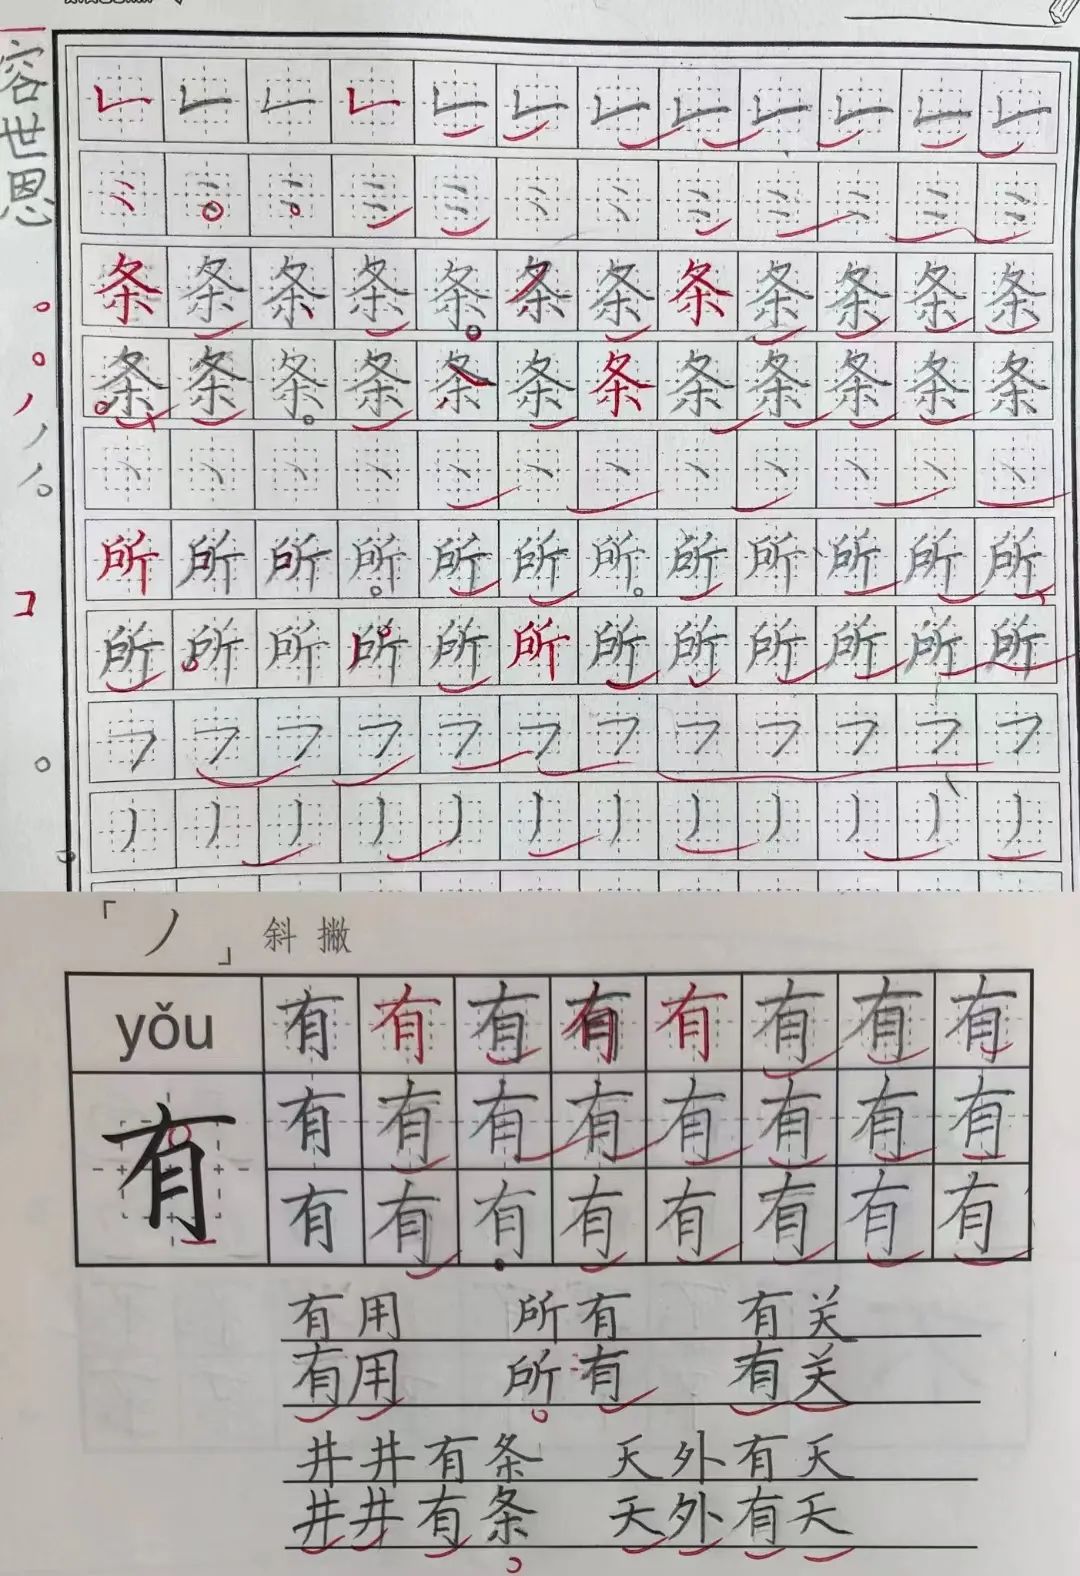 容世恩
条条条条条条条条条条条条
条条条条条条条条条条条条
所所所所所所所所所所所所
所所所所所所所所所所所所
「丿」斜撇
yǒu 有有有有有有有有
有 有有有有有有有有
有有有有有有有有
有用 所有 有关
有用 所有 有关
井井有条 天外有天
井井有条 天外有天